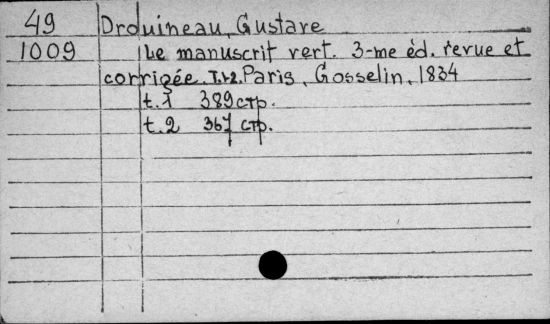 49 Drouineau, Gustave
1009 Le manuscrit vert. 3-me éd. revue et
corrigée. T.1-2. Paris, Gosselin, 1834
t. 1 389 стр.
t. 2 367 стр.